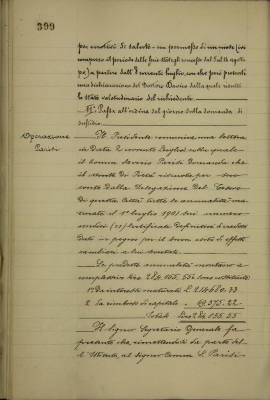 399
per motivi di salute - un permesso di un mese (ivi
compreso il periodo delle ferie
a partire dall' 8 corrente luglio, con che però presenti
una dichiarazione del Dottore dalla quale risulti
lo stato valetudinario del richiedente.
6° Passa all'ordine del giorno della domanda di
sussidio.
Operazione
Parisi
Il Presidente comunica una lettera
in data 2 corrente Luglio colla quale
il Comm. Saverio Parisi domanda che
il Monte di Pietà riscuota, per suo
conto dalla Delegazione del Tesoro
di questa Città tutte le annualità ma-
turate il 1° luglio 1901 sui numero
undici (11) Certificati definitivi di credito
dati in pegno per il buon esito di effetti
cambiari a lui scontati.
Le predette annualità montano a
complessive Lire 284.055.55 così costituite:
1° Da interessi maturati L. 214.680.33
2° Da rimborso di capitale " 69.375.22
Totale Lire 284.055.55
Il Signor Segretario Generale fa
presente che rimettendosi la parte del-
al Signor Comm. S. Parisi